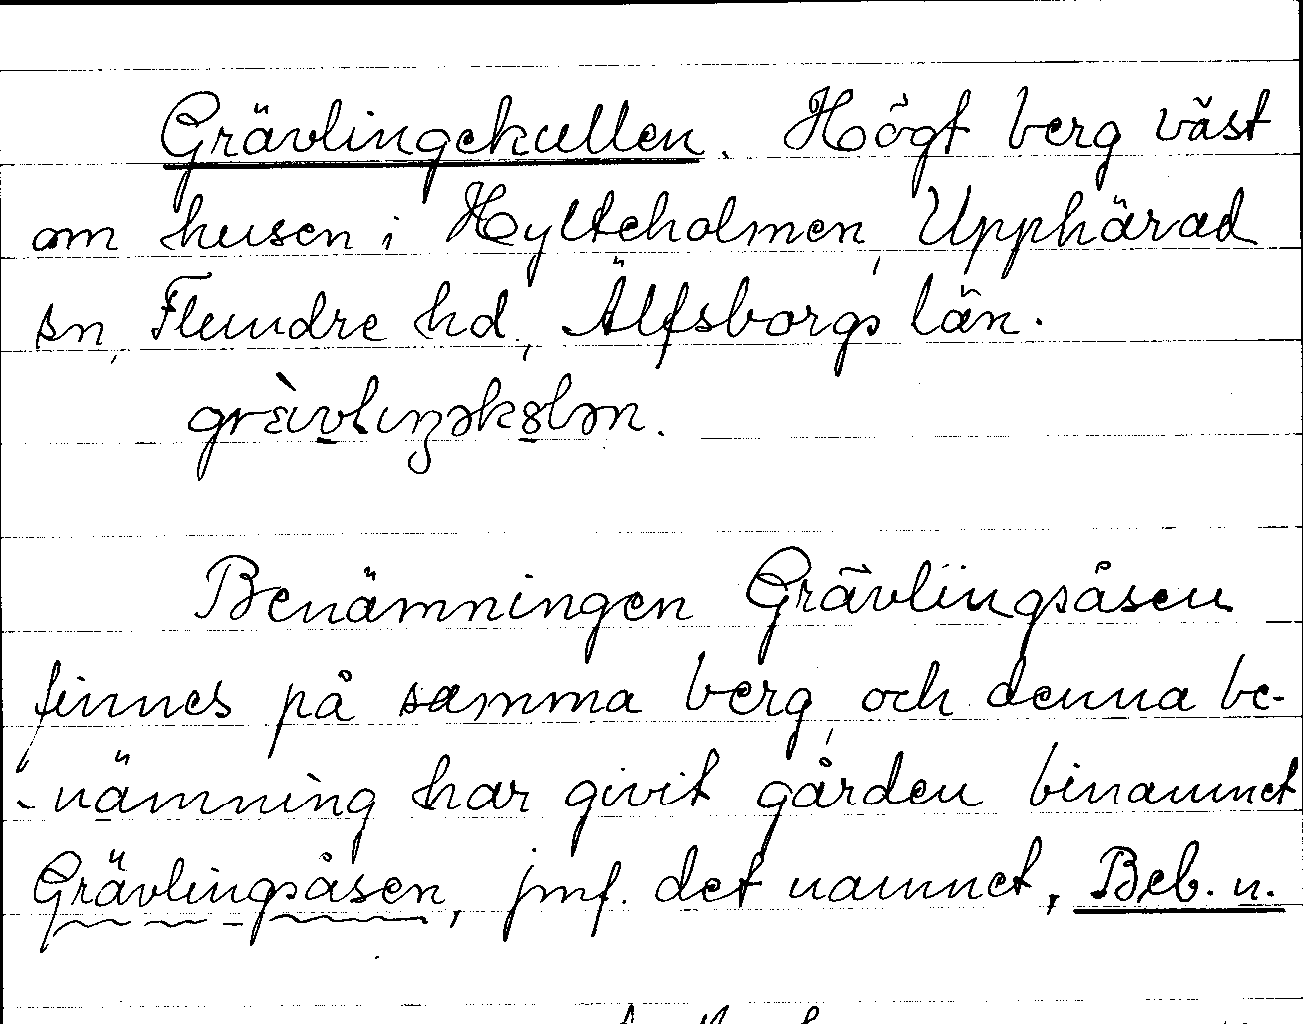 Grävlingekullen. Högt berg väst
om husen i Hylteholmen, Upphärad
sn, Flundre hd, Älfsborgs län.
grὲvlıŋəkȣlən.
Benämningen Grävlingsåsen
finnes på samma berg, och denna be-
-nämning har givit gården binamnet
Grävlingsåsen, jmf. det namnet, Beb. n.